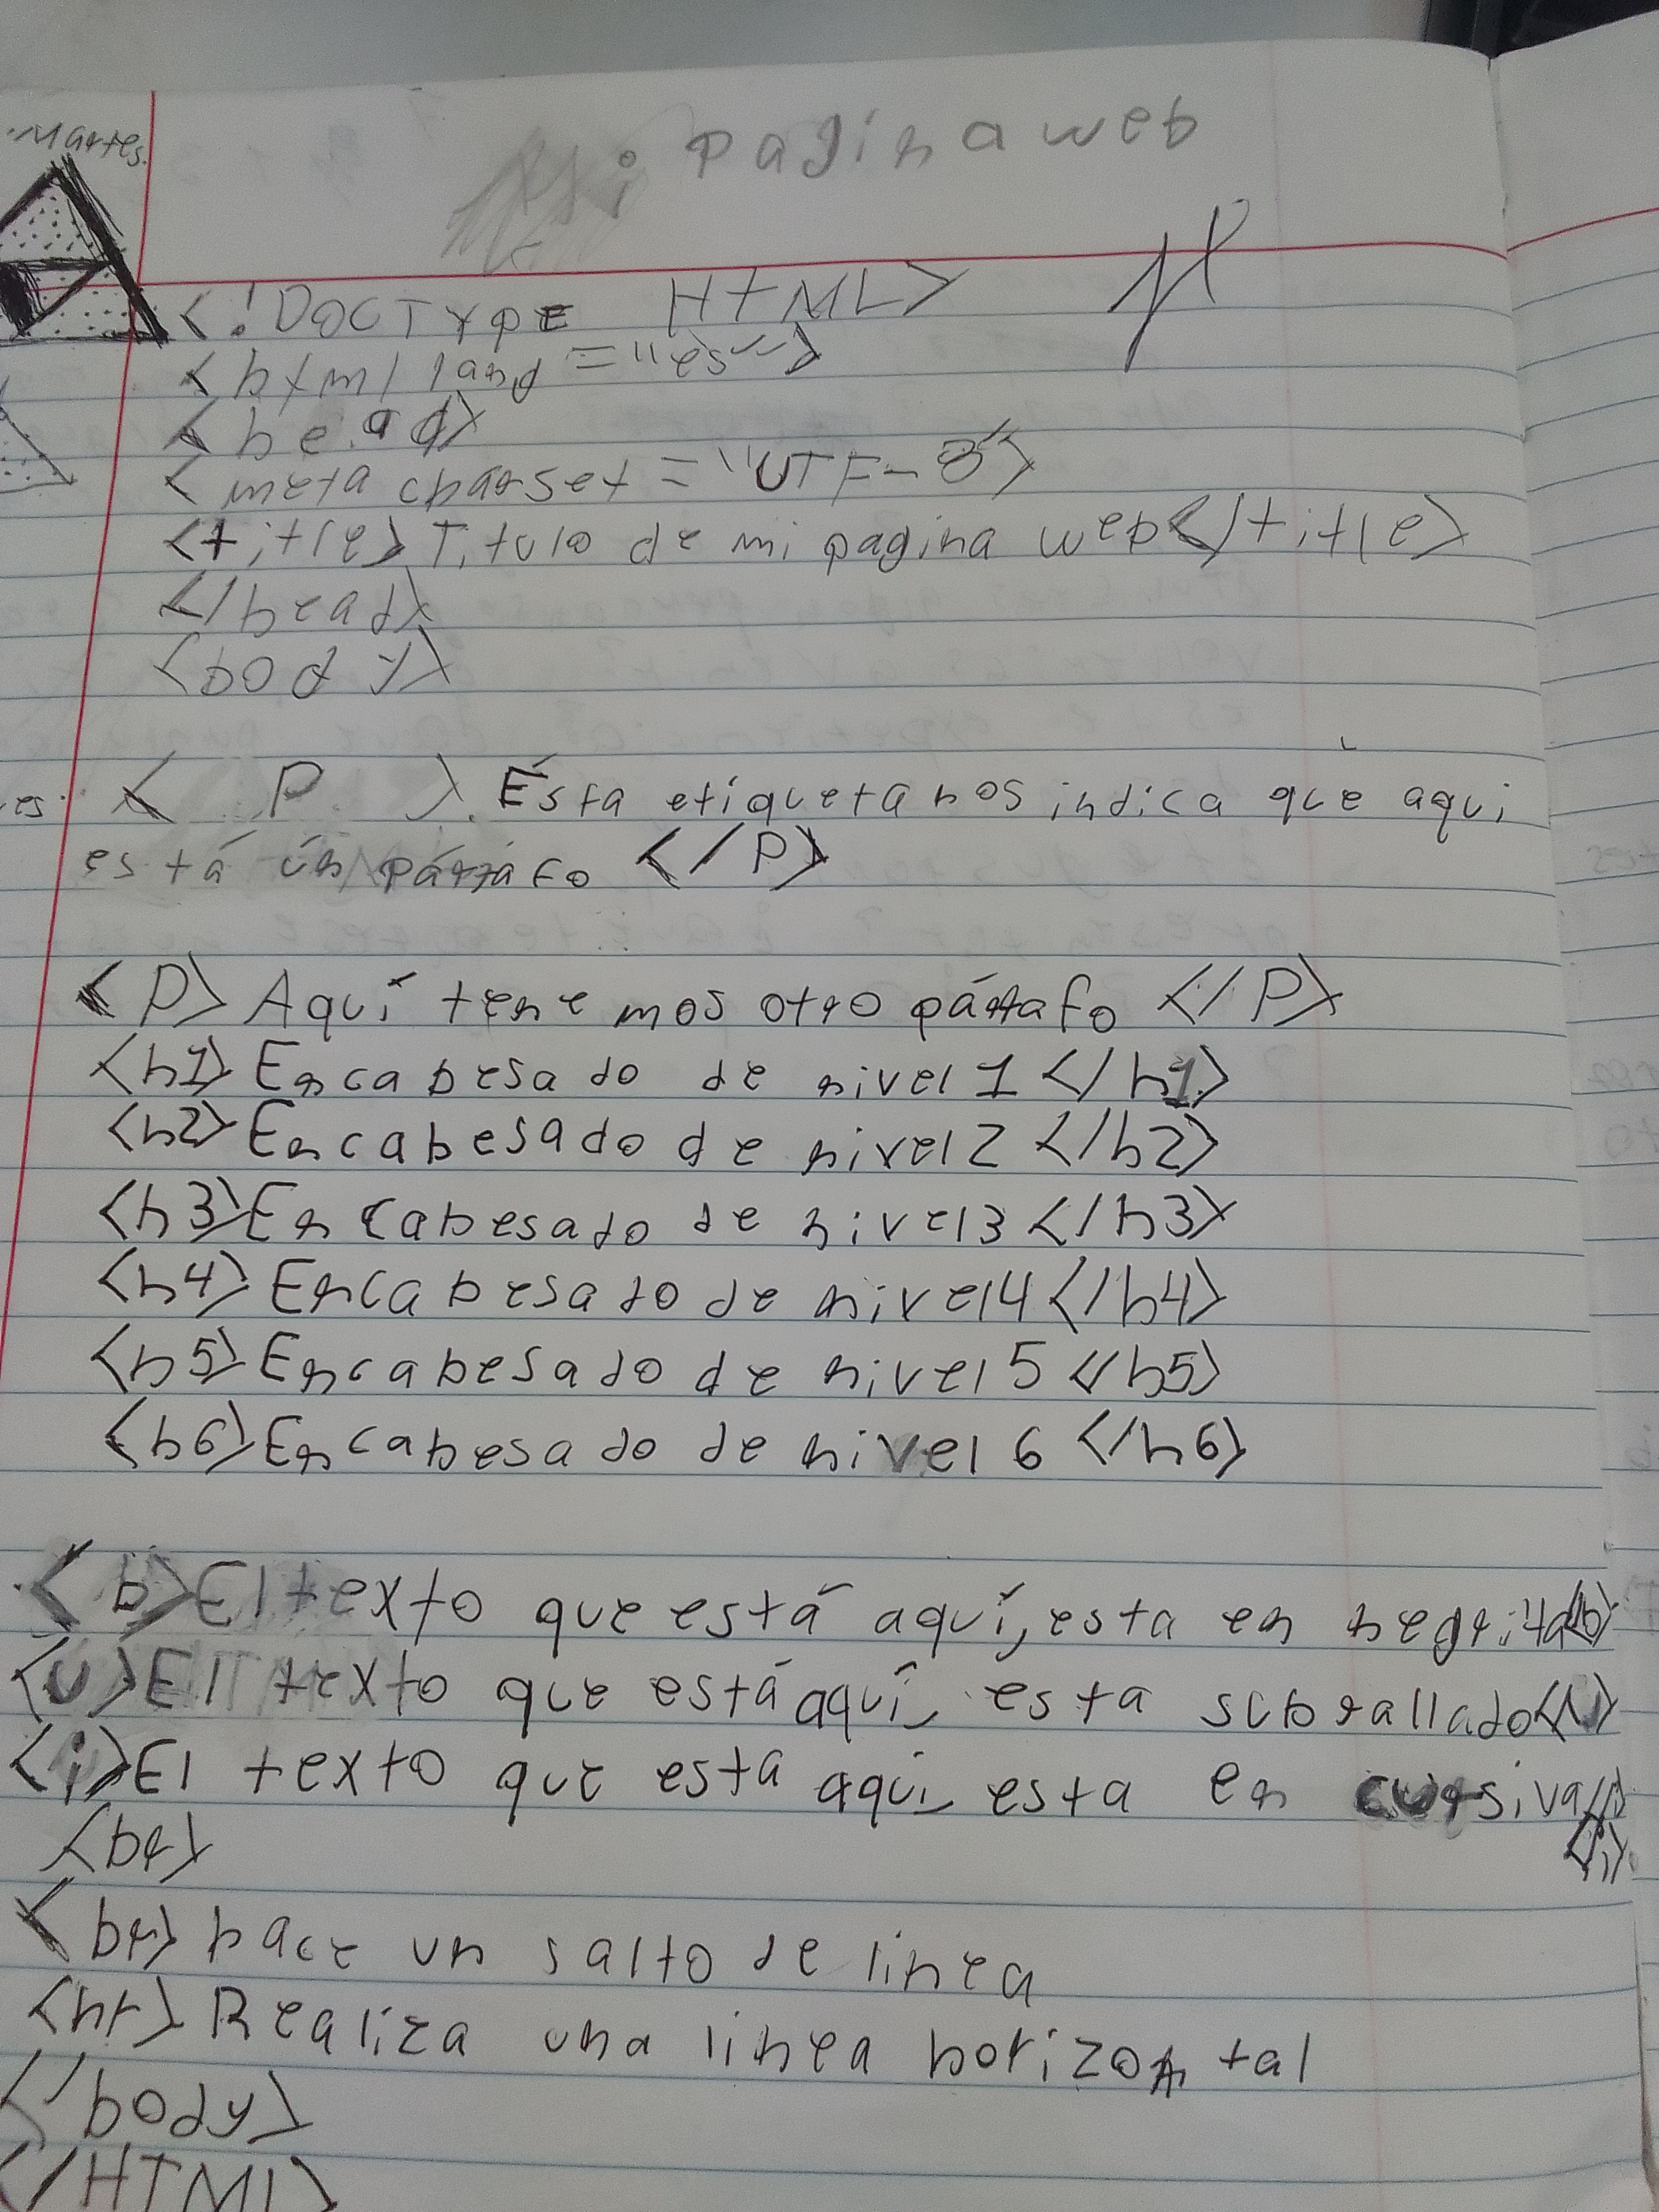 Martes.
Mi pagina web
<!DOCTYPE HTML>
<html land="es">
<head>
<meta charset="UTF-8">
<title>Titulo de mi pagina web</title>
</head>
<body>
<P>. Ésta etiqueta nos indica que aqui
está ún párráfo </P>
<P> Aquí tenemos otro párrafo </P>
<h1> Encabesado de nivel 1 </h1>
<h2> Encabesado de nivel 2 </h2>
<h3> Encabesado de nivel 3 </h3>
<h4> Encabesado de nivel 4 </h4>
<h5> Encabesado de nivel 5 </h5>
<h6> Encabesado de nivel 6 </h6>
<b> El texto que está aquí, esta en negrita</b>
<u> El texto que está aquí, esta subrallado</u>
<i> El texto que esta aqui, esta en cursiva
</i>
<br>
<br> hace un salto de linea
<hr> Realiza una linea horizontal
</body>
</HTML>